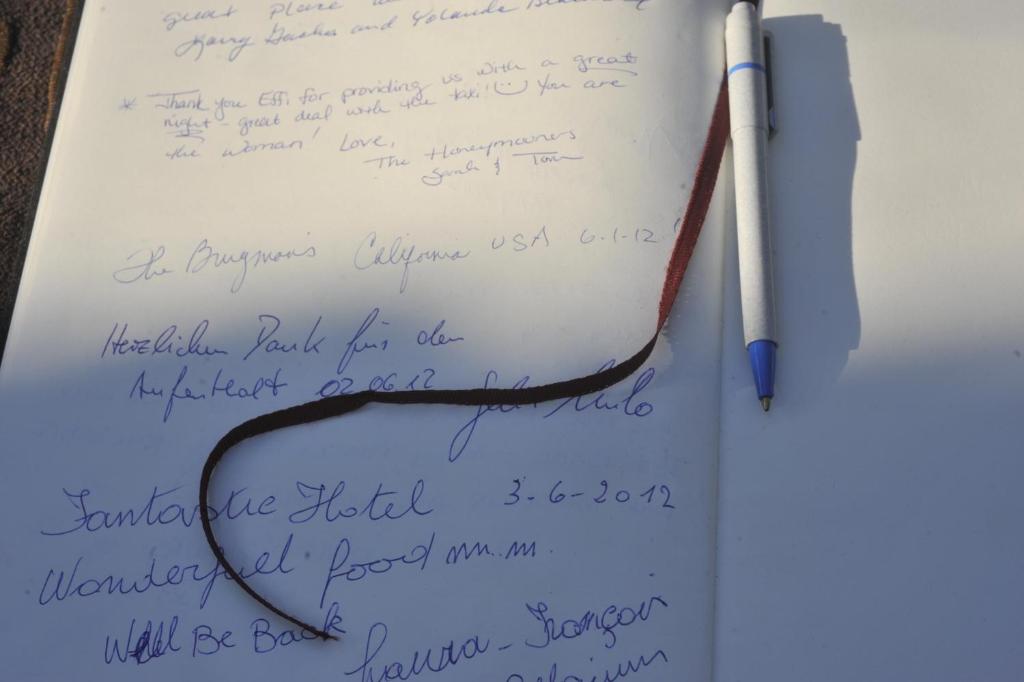 great
and Yolande
* Thank you Effi for providing us with a great
night - great deal with the taxi! You are
the woman! Love,
The Honeymooners
Sarah & Tom
The Brugman's California USA 6-1-12!
Herzlichen Dank für den
Aufenthalt 02.06.12
Fantastic Hotel 3-6-2012
Wonderfuel food mm.m.
Will Be Back
François
Belgium